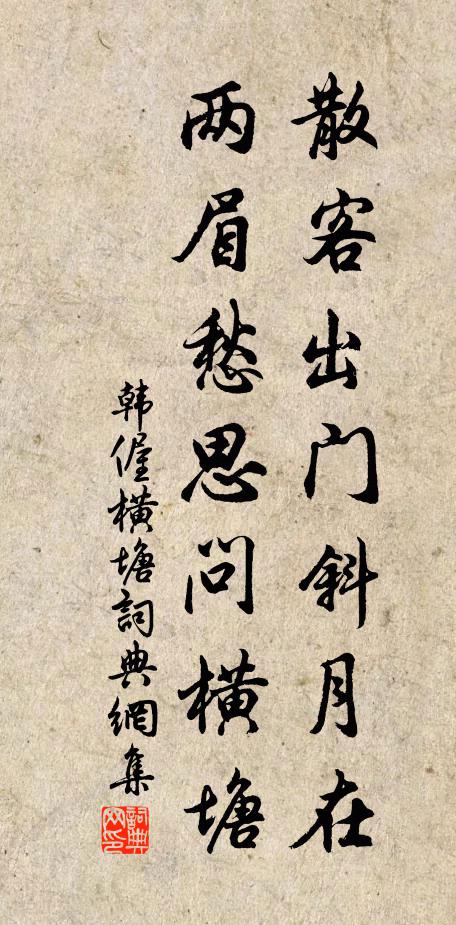 散客出门斜月在
两眉愁思问横塘
韩偓横塘詞典網集
詞典
网印